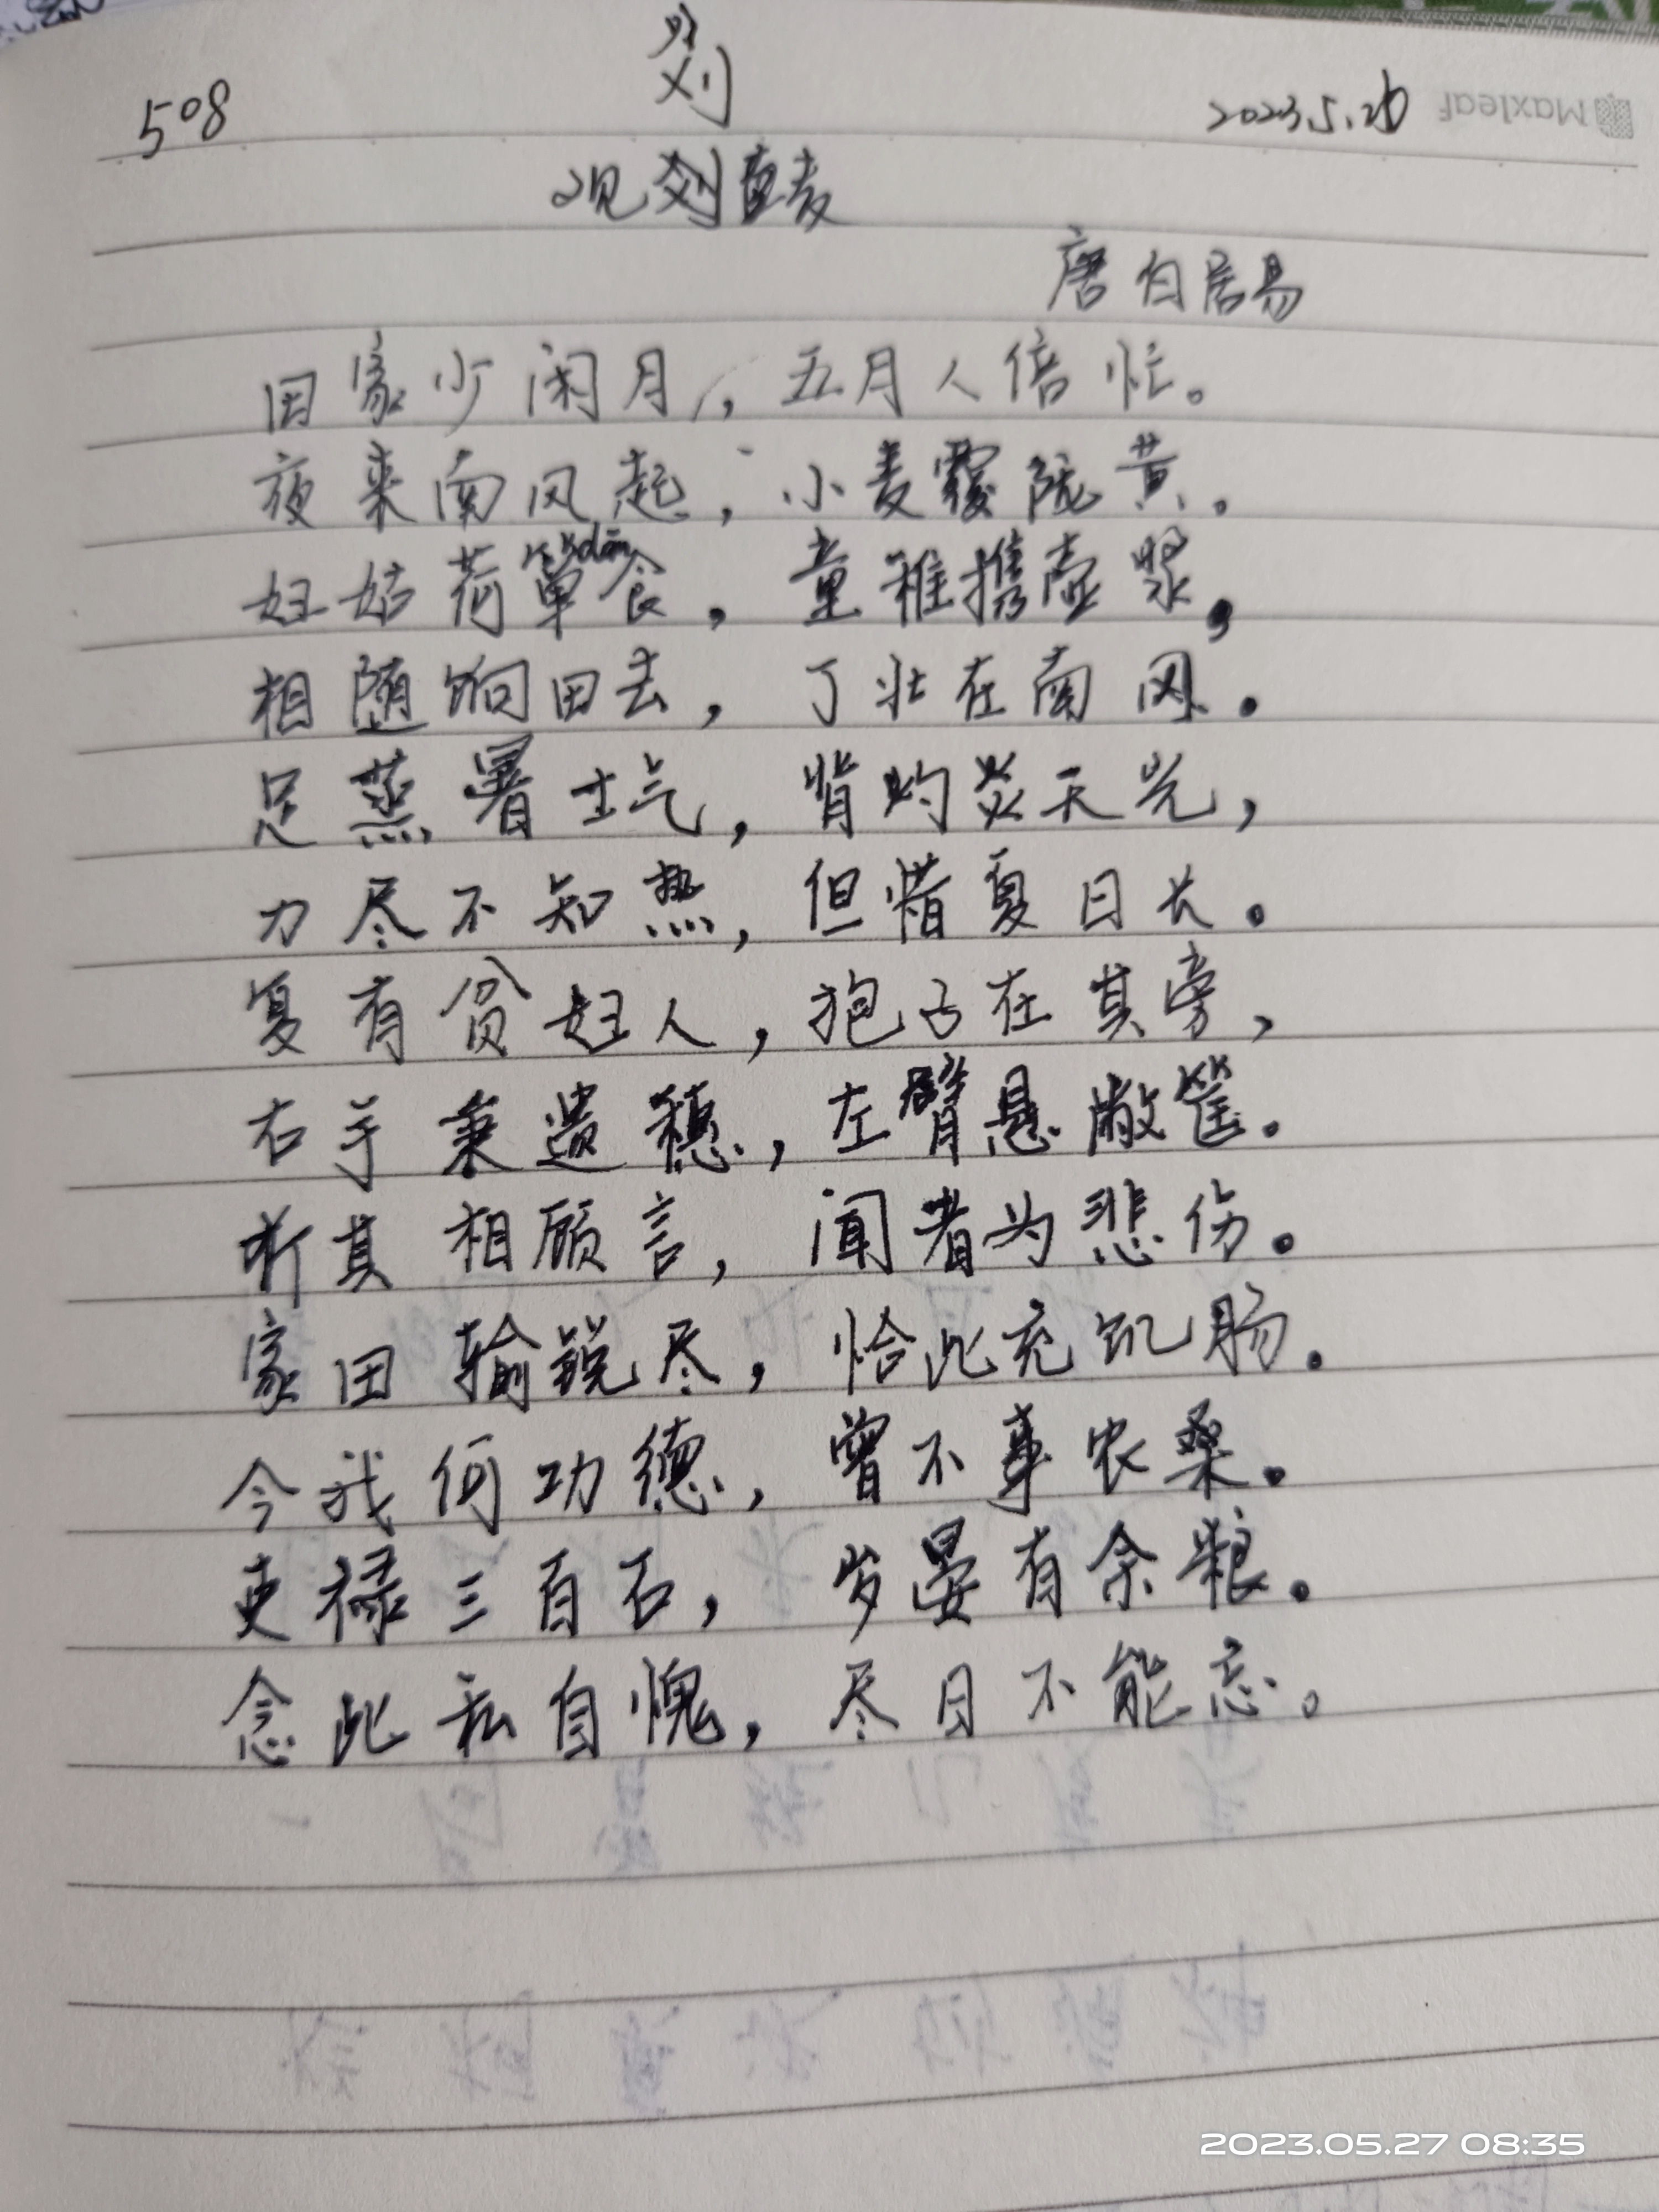 508
刈
2023.5.26
Maxleaf
观刈麦
唐 白居易
田家少闲月，五月人倍忙。
夜来南风起，小麦覆陇黄。
妇姑荷箪dān食，童稚携壶浆，
相随饷田去，丁壮在南冈。
足蒸暑土气，背灼炎天光，
力尽不知热，但惜夏日长。
复有贫妇人，抱子在其旁，
右手秉遗穗，左臂悬敝筐。
听其相顾言，闻者为悲伤。
家田输锐尽，恰此充饥肠。
今我何功德，曾不事农桑。
吏禄三百石，岁晏有余粮。
念此私自愧，尽日不能忘。
2023.05.27 08:35